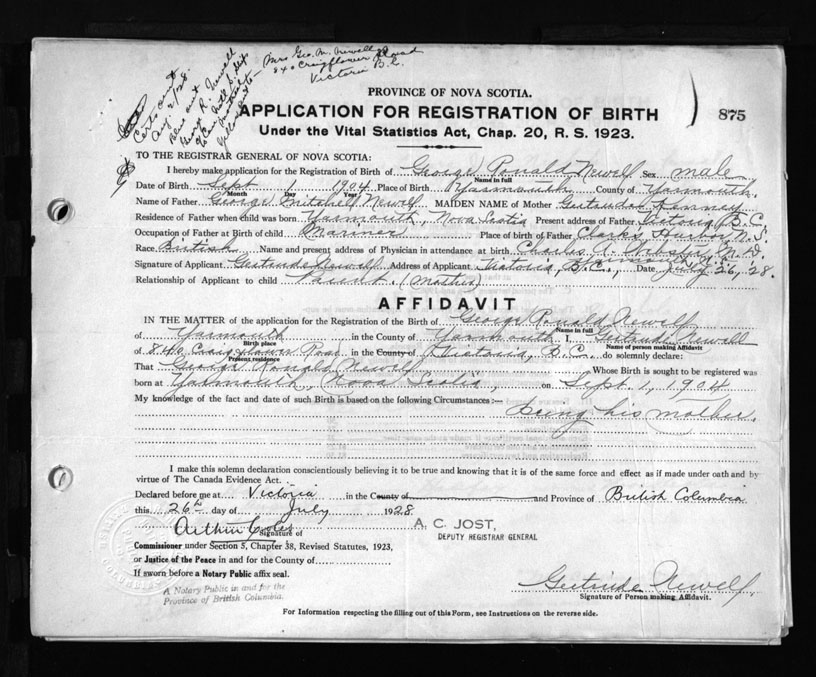 Mrs Geo. M. Newell
840 Craigflower Road
Victoria B.C.
Cert. out
Aug 2/28.
Blue out
George R. Newell
PROVINCE OF NOVA SCOTIA.
875
APPLICATION FOR REGISTRATION OF BIRTH
Under the Vital Statistics Act, Chap. 20, R. S. 1923.
TO THE REGISTRAR GENERAL OF NOVA SCOTIA:
I hereby make application for the Registration of Birth of George Ronald Newell Sex male
Name in full
Date of Birth Sept 1 1904 Place of Birth Yarmouth County of Yarmouth
Month Day Year
Name of Father George Mitchell Newell MAIDEN NAME of Mother Gertrude Kenney
Residence of Father when child was born Yarmouth, Nova Scotia Present address of Father Victoria B.C.
Occupation of Father at Birth of child Mariner Place of birth of Father Clarks Harbor N.S.
Race British Name and present address of Physician in attendance at birth Charles A. M.D.
Yarmouth N.S.
Signature of Applicant Gertrude Newell Address of Applicant Victoria, B.C., Date July 26, 28.
Relationship of Applicant to child Parent. (Mother)
AFFIDAVIT
IN THE MATTER of the application for the Registration of the Birth of George Ronald Newell
Name in full
of Yarmouth in the County of Yarmouth I, Gertrude Newell
Birth place Name of person making Affidavit
of 840 Road in the County of Victoria, B.C. do solemnly declare:
Present residence
That George Ronald Newell Whose Birth is sought to be registered was
born at Yarmouth, Nova Scotia, on Sept. 1, 1904
My knowledge of the fact and date of such Birth is based on the following Circumstances:—
Being his mother.
I make this solemn declaration conscientiously believing it to be true and knowing that it is of the same force and effect as if made under oath and by
virtue of The Canada Evidence Act.
Declared before me at Victoria in the County of and Province of British Columbia
this 26th day of July 1928
Arthur Coles
Signature of
A. C. JOST,
DEPUTY REGISTRAR GENERAL
Commissioner under Section 5, Chapter 38, Revised Statutes, 1923,
or Justice of the Peace in and for the County of
If sworn before a Notary Public affix seal.
A Notary Public in and for the
Province of British Columbia.
Gertrude Newell
Signature of Person making Affidavit.
For Information respecting the filling out of this Form, see Instructions on the reverse side.